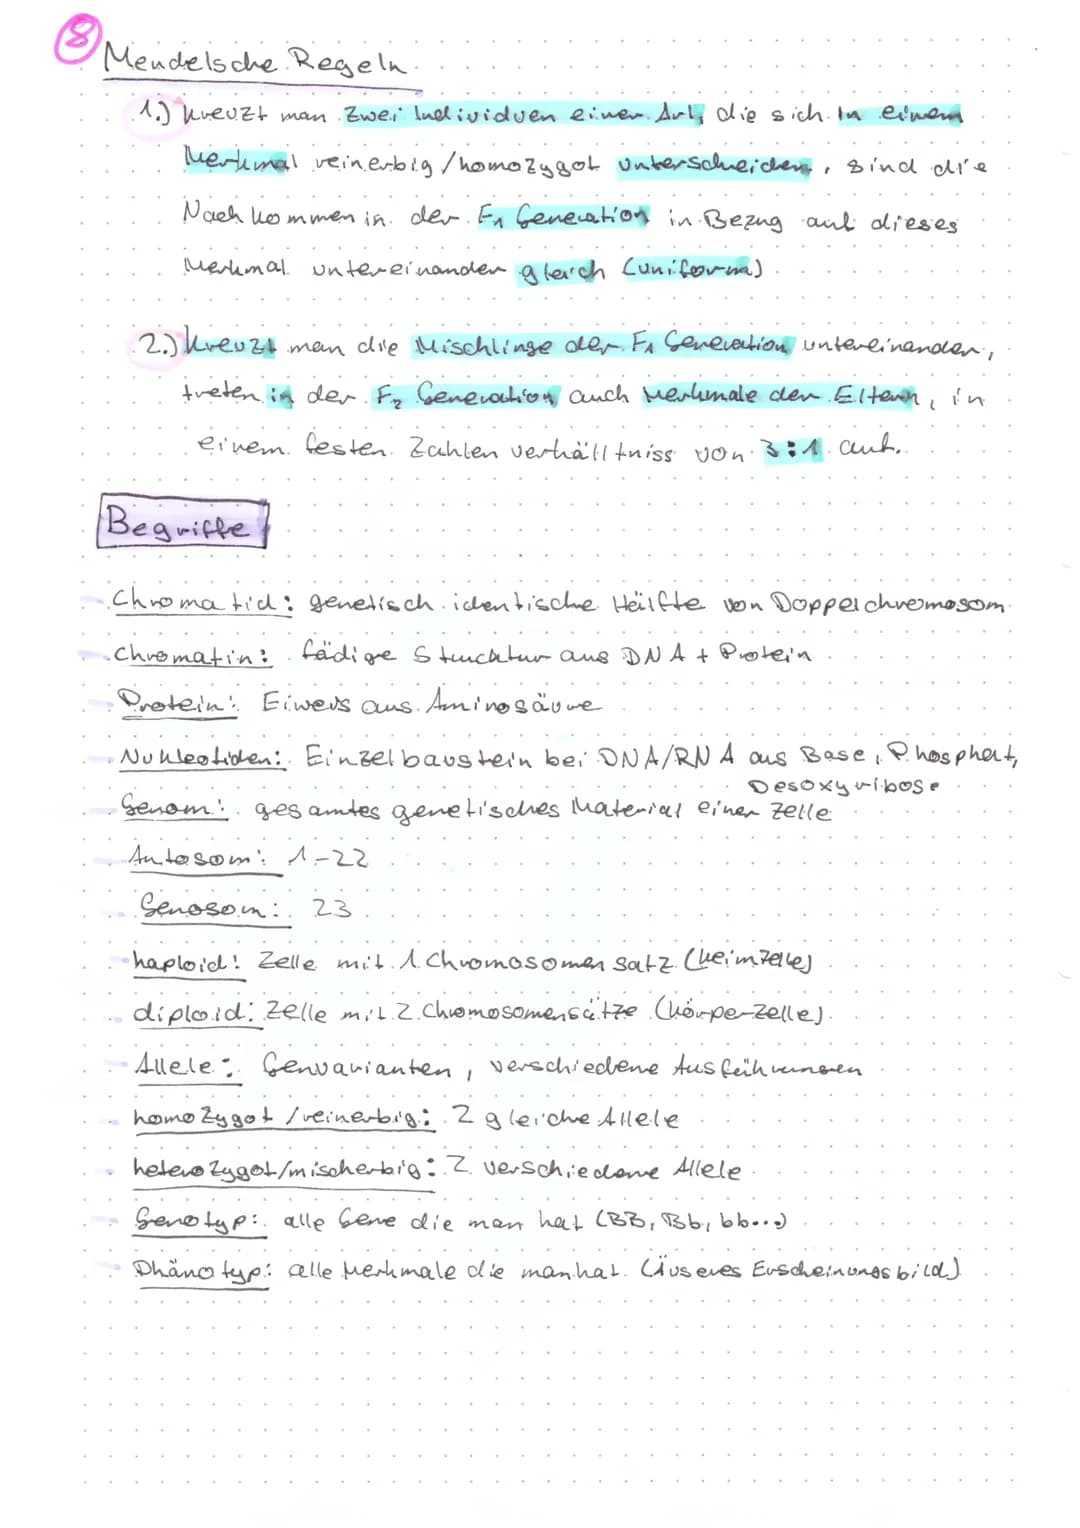 8
Mendelsche Regeln
1.) Kreuzt man zwei Individuen einer Art, die sich in einem
Merkmal reinerbig/homozygot unterscheiden, sind die
Nachkommen in der F1 Generation in Bezug auf dieses
Merkmal untereinander gleich (uniform)
2.) Kreuzt man die Mischlinge der F1 Generation untereinander,
treten in der F2 Generation auch Merkmale der Eltern, in
einem festen Zahlen verhälltniss von 3:1 auf.
Begriffe
- Chromatid: genetisch identische Hälfte von Doppelchromosom
- Chromatin: fädige Strucktur aus DNA + Protein
- Protein: Eiweis aus Aminosäure
- Nukleotiden: Einzelbaustein bei DNA/RNA aus Base, Phosphat,
Desoxyribose
- Genom: gesamtes genetisches Material einer Zelle
- Autosom: 1-22
- Genosom: 23
- haploid: Zelle mit 1 Chromosomensatz (Keimzelle)
- diploid: Zelle mit 2 Chromosomensätze (Körperzelle)
- Allele: Genvarianten, verschiedene Ausführungen
- homozygot/reinerbig: 2 gleiche Allele
- heterozygot/mischerbig: 2 verschiedene Allele
- Genotyp: alle Gene die man hat (BB, Bb, bb...)
- Phänotyp: alle Merkmale die man hat (äuseres Erscheinungsbild)